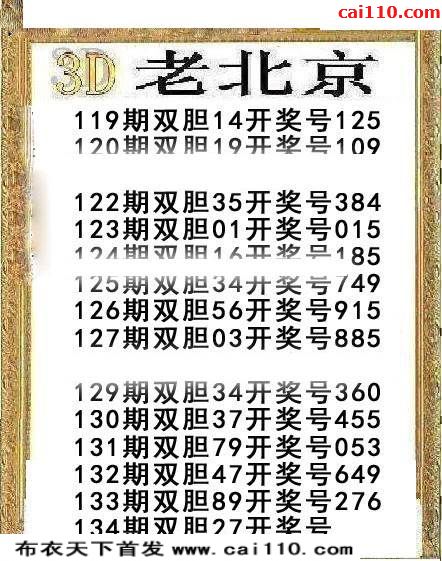 cai110.com
3D 老北京
119期双胆14开奖号125
120期双胆19开奖号109
122期双胆35开奖号384
123期双胆01开奖号015
124期双胆16开奖号185
125期双胆34开奖号749
126期双胆56开奖号915
127期双胆03开奖号885
129期双胆34开奖号360
130期双胆37开奖号455
131期双胆79开奖号053
132期双胆47开奖号649
133期双胆89开奖号276
134期双胆27开奖号
布衣天下首发 www.cai110.com